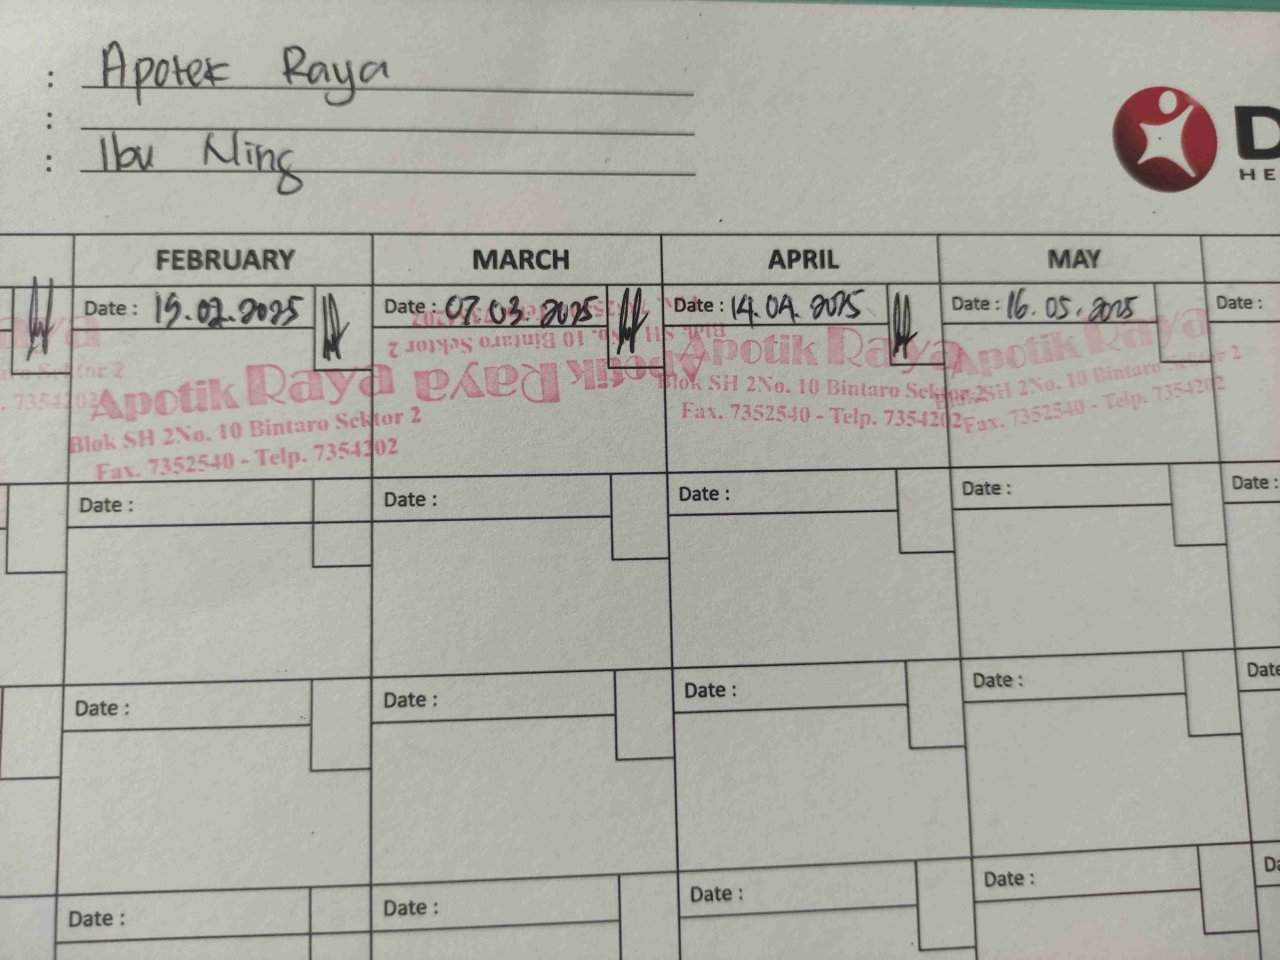 : Apotek Raya
:
: Ibu Ning
D
HE
FEBRUARY MARCH APRIL MAY
Date : 15.02.2025 Date : 07.03.2025 Date : 14.04.2025 Date : 16.05.2025 Date :
Apotik Raya
Blok SH 2 No. 10 Bintaro Sektor 2
Fax. 7352540 - Telp. 7354202
Apotik Raya
No. 10 Bintaro Sektor 2
Apotik Raya
Blok SH 2No. 10 Bintaro Sektor 2
Fax. 7352540 - Telp. 7354202
Apotik Raya
SH 2No. 10 Bintaro Sektor 2
Fax. 7352540 - Telp. 7354202
. 7354202
Date : Date : Date : Date : Date :
Date : Date : Date : Date : Date
Date : Date : Date : Date : Da